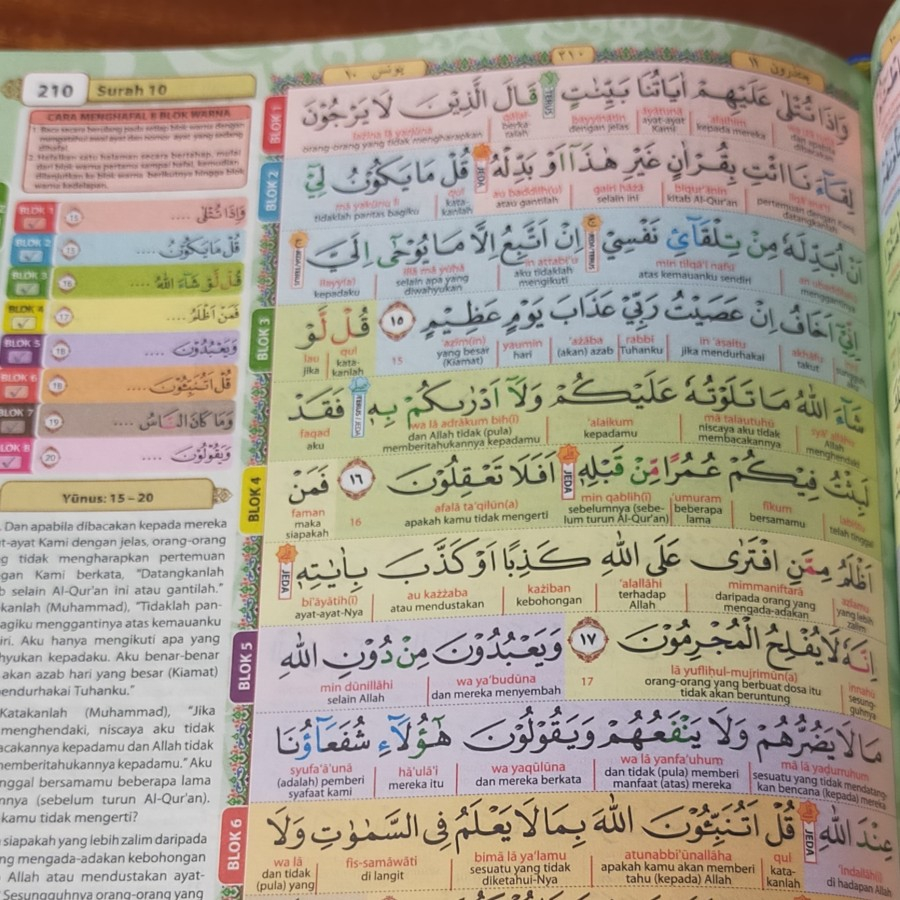 210 Surah 10
يونس ١٠
٢١٠
CARA MENGHAFAL 8 BLOK WARNA
BLOK 1 ١٥ وَإِذَا تُتْلٰى ....
BLOK 2 ١٥ قُلْ مَا يَكُوْنُ ....
BLOK 3 ١٦ قُلْ لَّوْ شَاۤءَ اللّٰهُ ....
BLOK 4 ١٧ فَمَنْ اَظْلَمُ ....
BLOK 5 ١٨ وَيَعْبُدُوْنَ ....
BLOK 6 ١٨ قُلْ اَتُنَبِّـُٔوْنَ ....
BLOK 7 ١٩ وَمَا كَانَ النَّاسُ ....
BLOK 8 ٢٠ وَيَقُوْلُوْنَ ....
Yūnus: 15 – 20
Dan apabila dibacakan kepada mereka
t-ayat Kami dengan jelas, orang-orang
g tidak mengharapkan pertemuan
gan Kami berkata, "Datangkanlah
b selain Al-Qur'an ini atau gantilah."
kanlah (Muhammad), "Tidaklah pan-
agiku menggantinya atas kemauanku
iri. Aku hanya mengikuti apa yang
hyukan kepadaku. Aku benar-benar
akan azab hari yang besar (Kiamat)
endurhakai Tuhanku."
Katakanlah (Muhammad), "Jika
menghendaki, niscaya aku tidak
acakannya kepadamu dan Allah tidak
memberitahukannya kepadamu." Aku
nggal bersamamu beberapa lama
nnya (sebelum turun Al-Qur'an).
kamu tidak mengerti?
siapakah yang lebih zalim daripada
ng mengada-adakan kebohongan
Allah atau mendustakan ayat-
Sesungguhnya orang-orang yang
BLOK 1
وَاِذَا تُتْلٰى عَلَيْهِمْ اٰيَاتُنَا بَيِّنٰتٍ قَالَ الَّذِيْنَ لَا يَرْجُوْنَ
'alaihim āyātunā bayyinātin qālal- lażīna lā yarjūna
kepada mereka ayat-ayat Kami dengan jelas berkata orang-orang yang tidak mengharapkan
BLOK 2
لِقَاۤءَنَا ائْتِ بِقُرْاٰنٍ غَيْرِ هٰذَآ اَوْ بَدِّلْهُ JEDA قُلْ مَا يَكُوْنُ لِيْٓ
biqur'ānin gairi hāżā au baddilhu(ū) qul mā yakūnu lī
kitab Al-Qur'an selain ini atau gantilah kata-kanlah tidaklah pantas bagiku
اَنْ اُبَدِّلَهٗ مِنْ تِلْقَاۤئِ نَفْسِيْ JEDA اِنْ اَتَّبِعُ اِلَّا مَا يُوْحٰٓى اِلَيَّ
min tilqā'i nafsī in attabi'u illā mā yūḥā ilayy(a)
atas kemauanku sendiri aku tidaklah mengikuti selain apa yang diwahyukan kepadaku
BLOK 3
اِنِّيْٓ اَخَافُ اِنْ عَصَيْتُ رَبِّيْ عَذَابَ يَوْمٍ عَظِيْمٍ ١٥ قُلْ لَّوْ
akhāfu in 'aṣaitu rabbī 'ażāba yaumin 'aẓīm(in) 15 qul lau
takut jika mendurhakai Tuhanku (akan) azab hari yang besar (Kiamat) kata-kanlah jika
شَاۤءَ اللّٰهُ مَا تَلَوْتُهٗ عَلَيْكُمْ وَلَآ اَدْرٰىكُمْ بِهٖ فَقَدْ
mā talautuhū 'alaikum wa lā adrākum bih(ī) faqad
Allah menghendaki niscaya aku tidak membacakannya kepadamu dan Allah tidak (pula) memberitahukannya kepadamu aku
BLOK 4
لَبِثْتُ فِيْكُمْ عُمُرًا مِّنْ قَبْلِهٖ JEDA اَفَلَا تَعْقِلُوْنَ ١٦ فَمَنْ
fīkum 'umuram min qablih(ī) afalā ta'qilūn(a) 16 faman
telah tinggal bersamamu beberapa lama sebelumnya (sebe-lum turun Al-Qur'an) apakah kamu tidak mengerti maka siapakah
اَظْلَمُ مِمَّنِ افْتَرٰى عَلَى اللّٰهِ كَذِبًا اَوْ كَذَّبَ بِاٰيٰتِهٖ JEDA
aẓlamu mimmaniftarā 'alallāhi każiban au każżaba bi'āyātih(ī)
yang lebih zalim daripada orang yang mengada-adakan terhadap Allah kebohongan atau mendustakan ayat-ayat-Nya
BLOK 5
اِنَّهٗ لَا يُفْلِحُ الْمُجْرِمُوْنَ ١٧ وَيَعْبُدُوْنَ مِنْ دُوْنِ اللّٰهِ
innahū lā yufliḥul-mujrimūn(a) 17 wa ya'budūna min dūnillāhi
sesung-guhnya orang-orang yang berbuat dosa itu tidak akan beruntung dan mereka menyembah selain Allah
مَا لَا يَضُرُّهُمْ وَلَا يَنْفَعُهُمْ وَيَقُوْلُوْنَ هٰٓؤُلَاۤءِ شُفَعَاۤؤُنَا
mā lā yaḍurruhum wa lā yanfa'uhum wa yaqūlūna hā'ulā'i syufa'ā'unā
sesuatu yang tidak mendatang-kan bencana (kepada) mereka dan tidak (pula) memberi manfaat (atas) mereka dan mereka berkata mereka itu (adalah) pemberi syafaat kami
BLOK 6
عِنْدَ اللّٰهِ JEDA قُلْ اَتُنَبِّـُٔوْنَ اللّٰهَ بِمَا لَا يَعْلَمُ فِى السَّمٰوٰتِ وَلَا
'indallāh(i) qul atunabbi'ūnallāha bimā lā ya'lamu fis-samāwāti wa lā
di hadapan Allah kata-kanlah apakah kamu akan memberi tahu (kepada) Allah sesuatu yang tidak diketahui-Nya di langit dan tidak (pula) yang